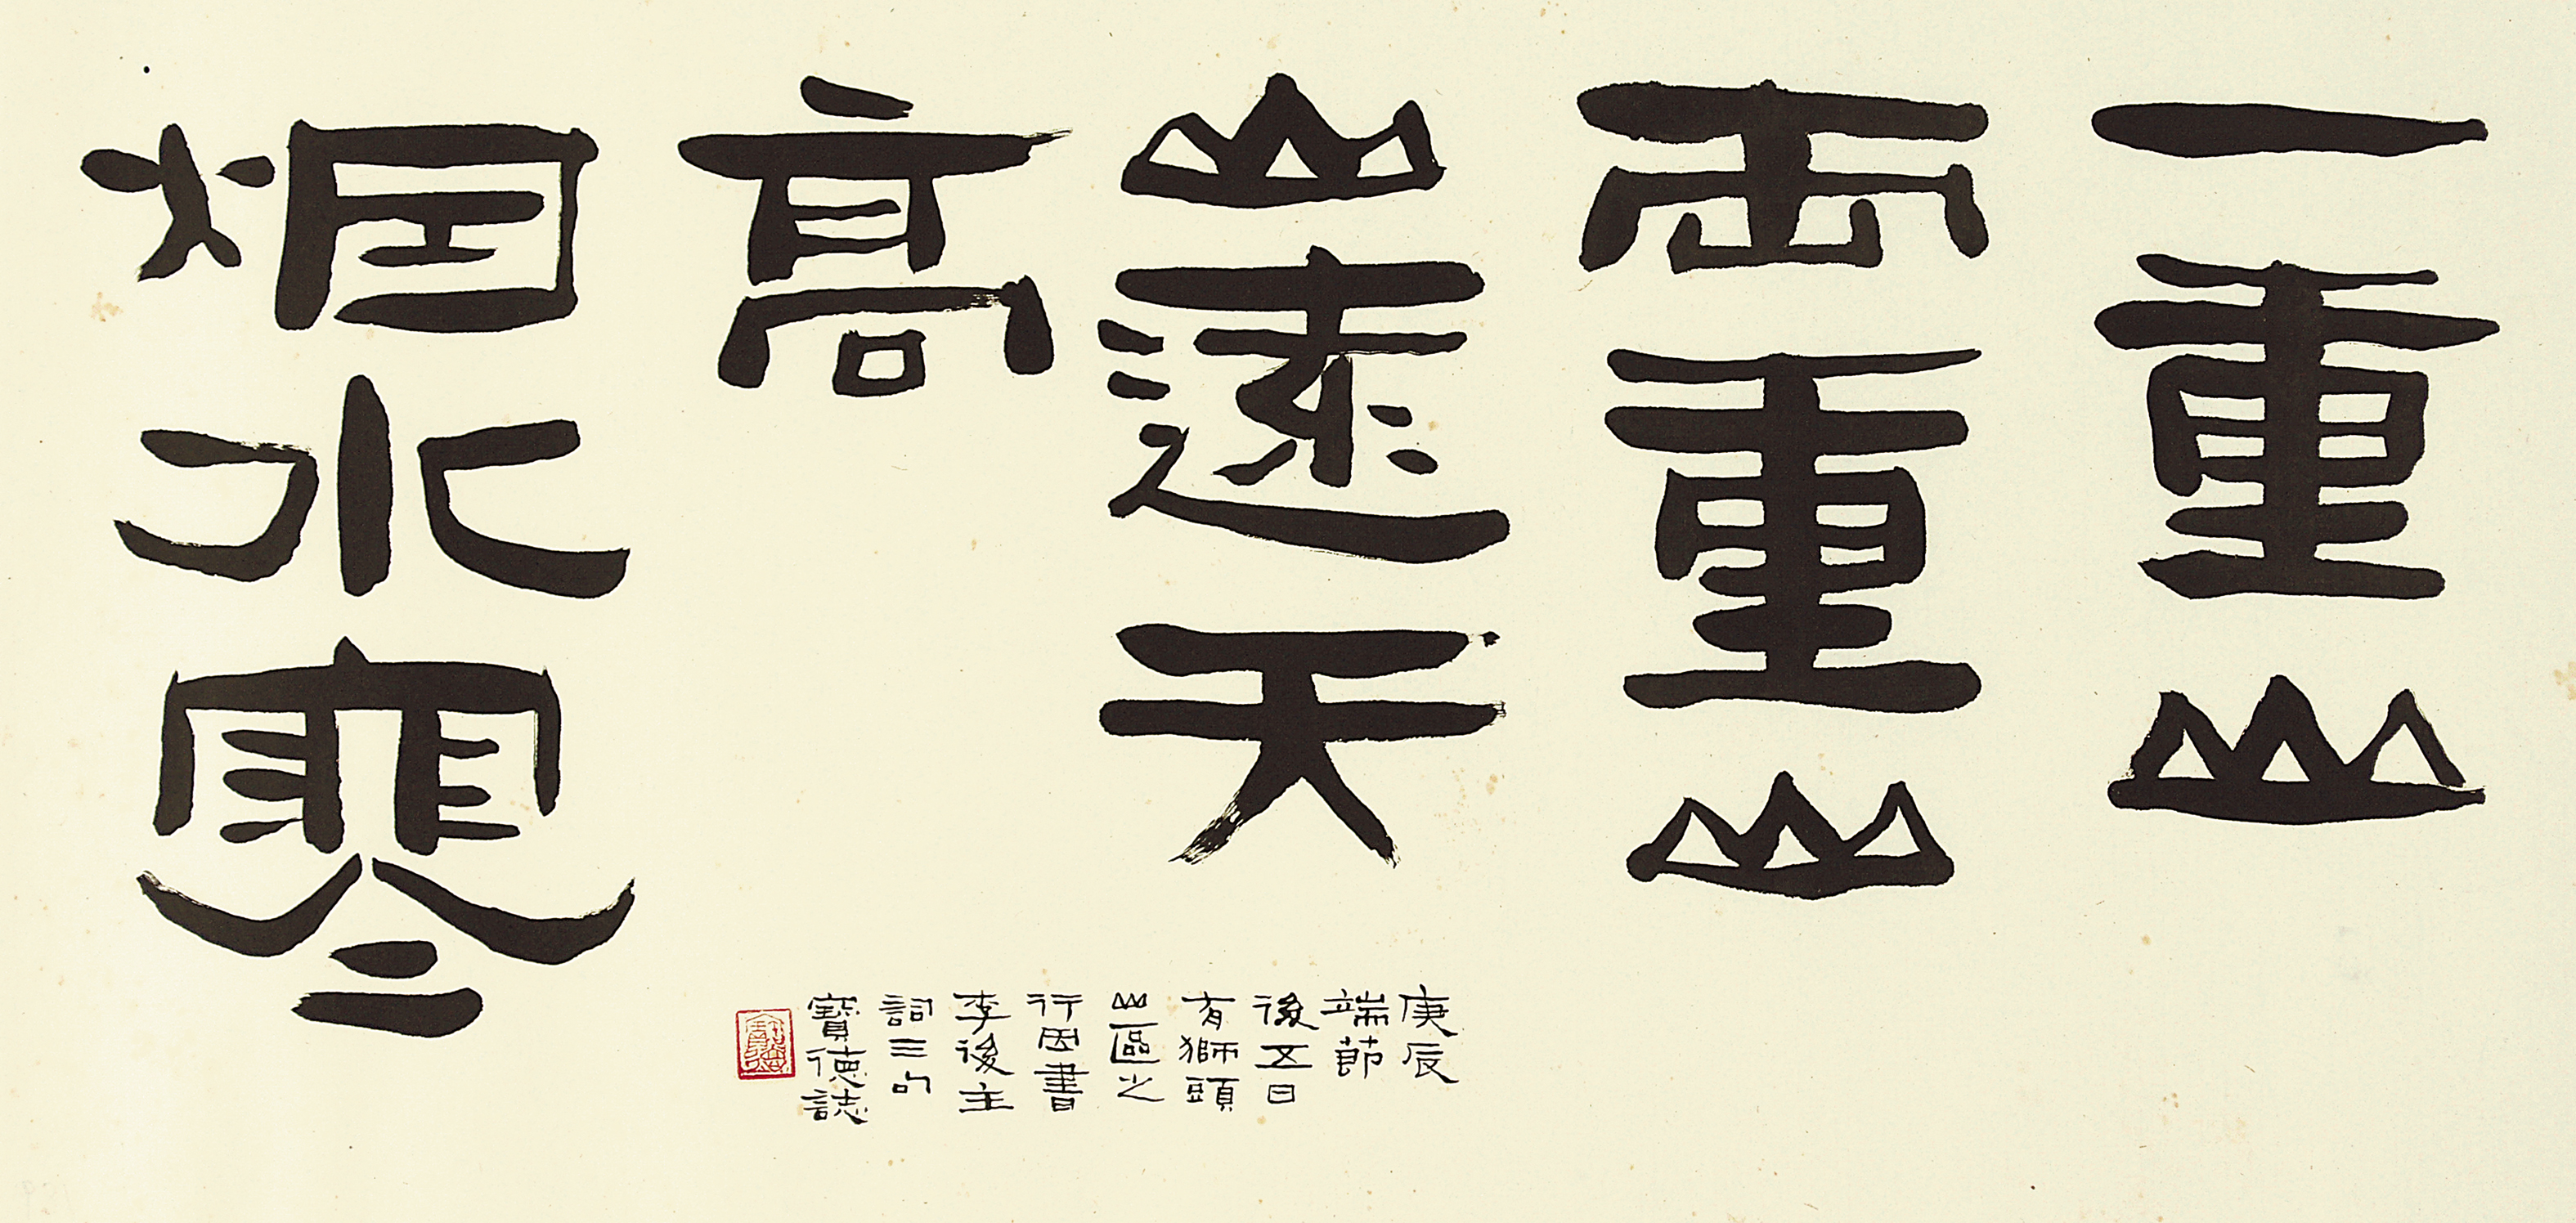 一重山
兩重山
山遠天
高
烟水寒
庚辰
端節
後五日
有獅頭
山區之
行因書
李後主
詞三句
寶德誌